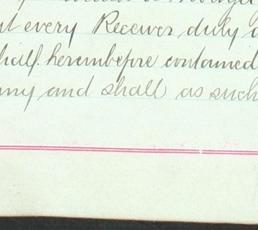 every Receiver duly
half hereinbefore contained
and shall as such